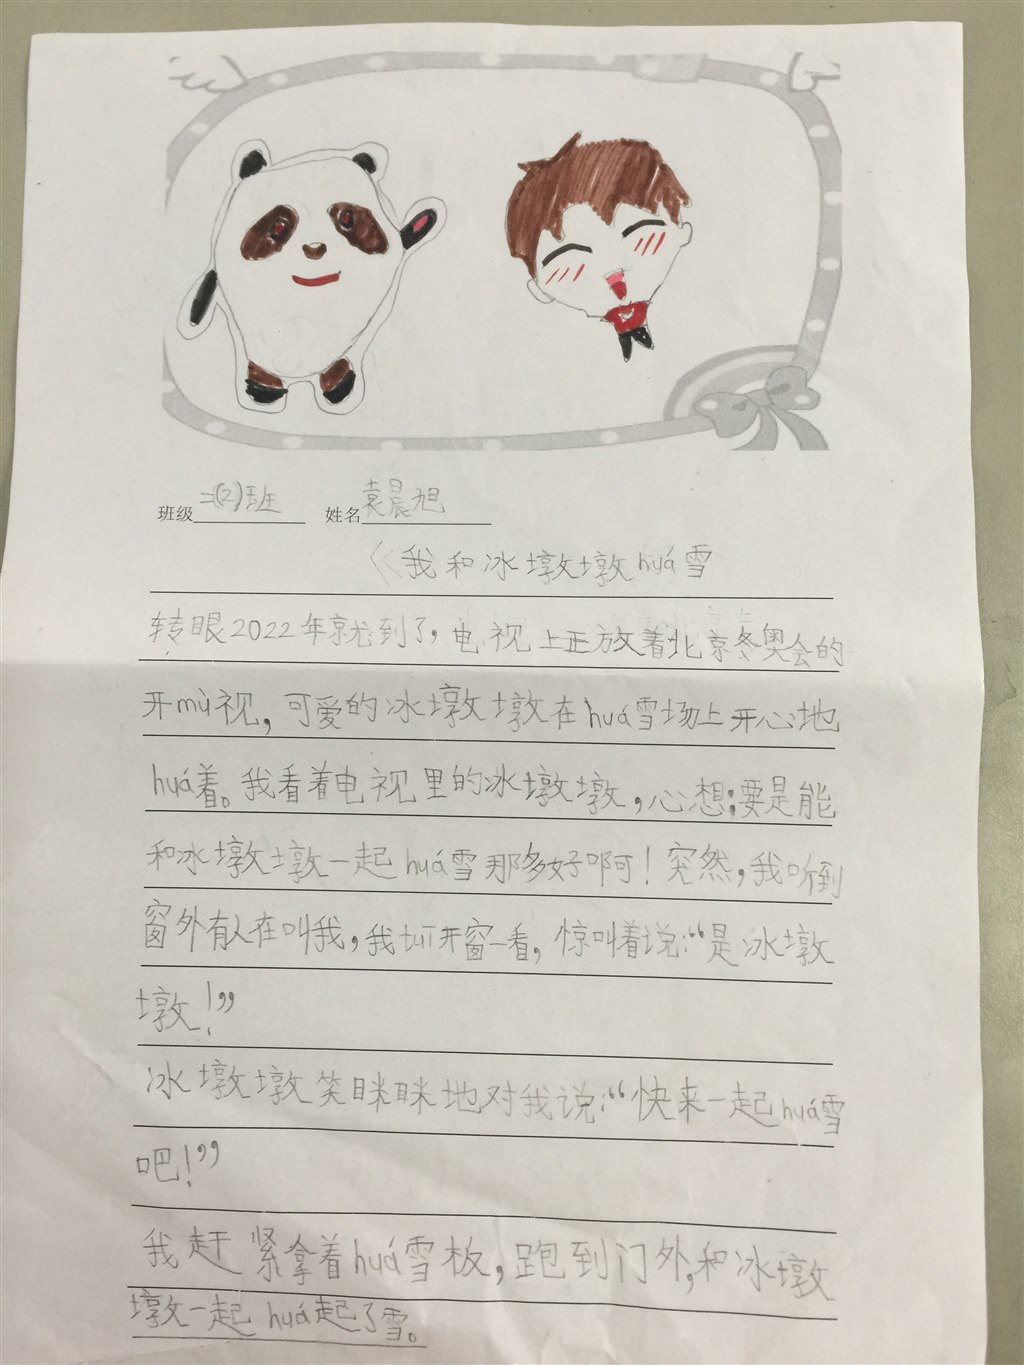 班级二(2)班 姓名袁晨旭
《我和冰墩墩huá雪
转眼2022年就到了,电视上正放着北京冬奥会的
开mù视,可爱的冰墩墩在huá雪场上开心地
huá着。我看着电视里的冰墩墩,心想:要是能
和冰墩墩一起huá雪那多好啊!突然,我听到
窗外有人在叫我,我tuī开窗一看,惊叫着说:“是冰墩
墩!”
冰墩墩笑眯眯地对我说:“快来一起huá雪
吧!”
我赶紧拿着huá雪板,跑到门外,和冰墩
墩一起huá起了雪。